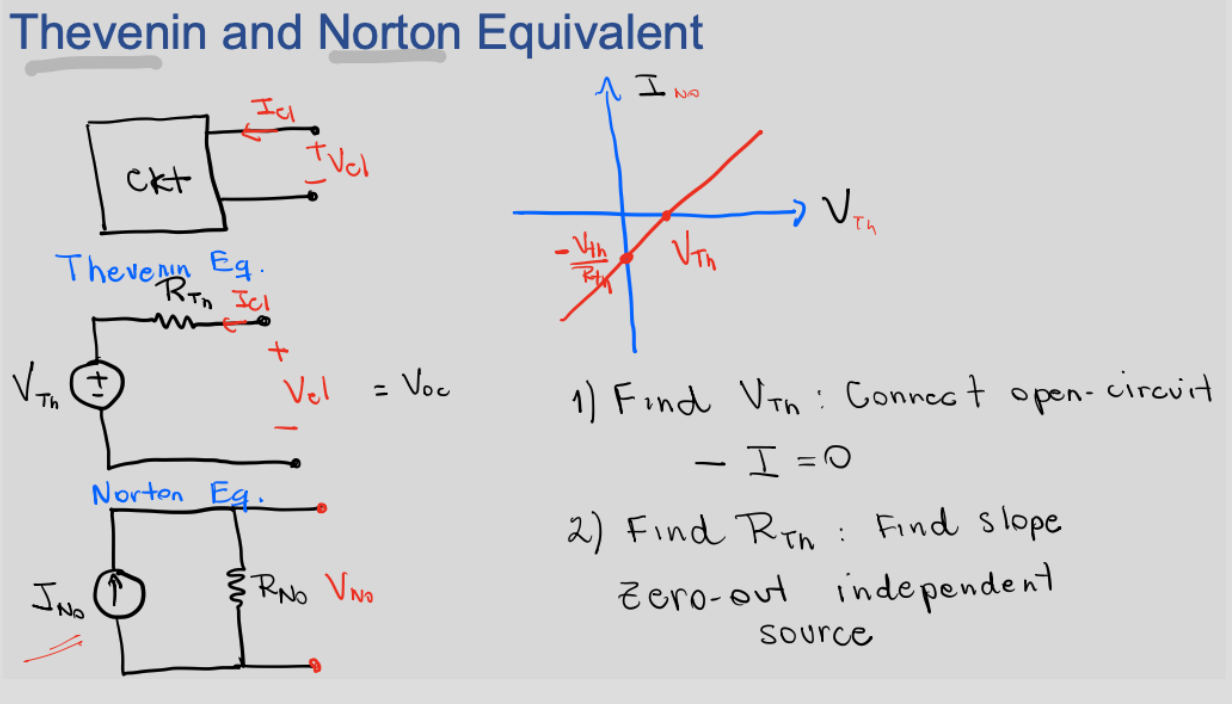 Thevenin and Norton Equivalent
Icl
+
Vcl
-
Ckt
Thevenin Eq.
RTh
Icl
VTh
+
-
+
Vcl
-
= Voc
Norton Eq.
INo
RNo
VNo
I No
VTh
-Vth
Rth
VTh
1) Find VTh : Connect open-circuit
- I = 0
2) Find RTh : Find slope
Zero-out independent
source